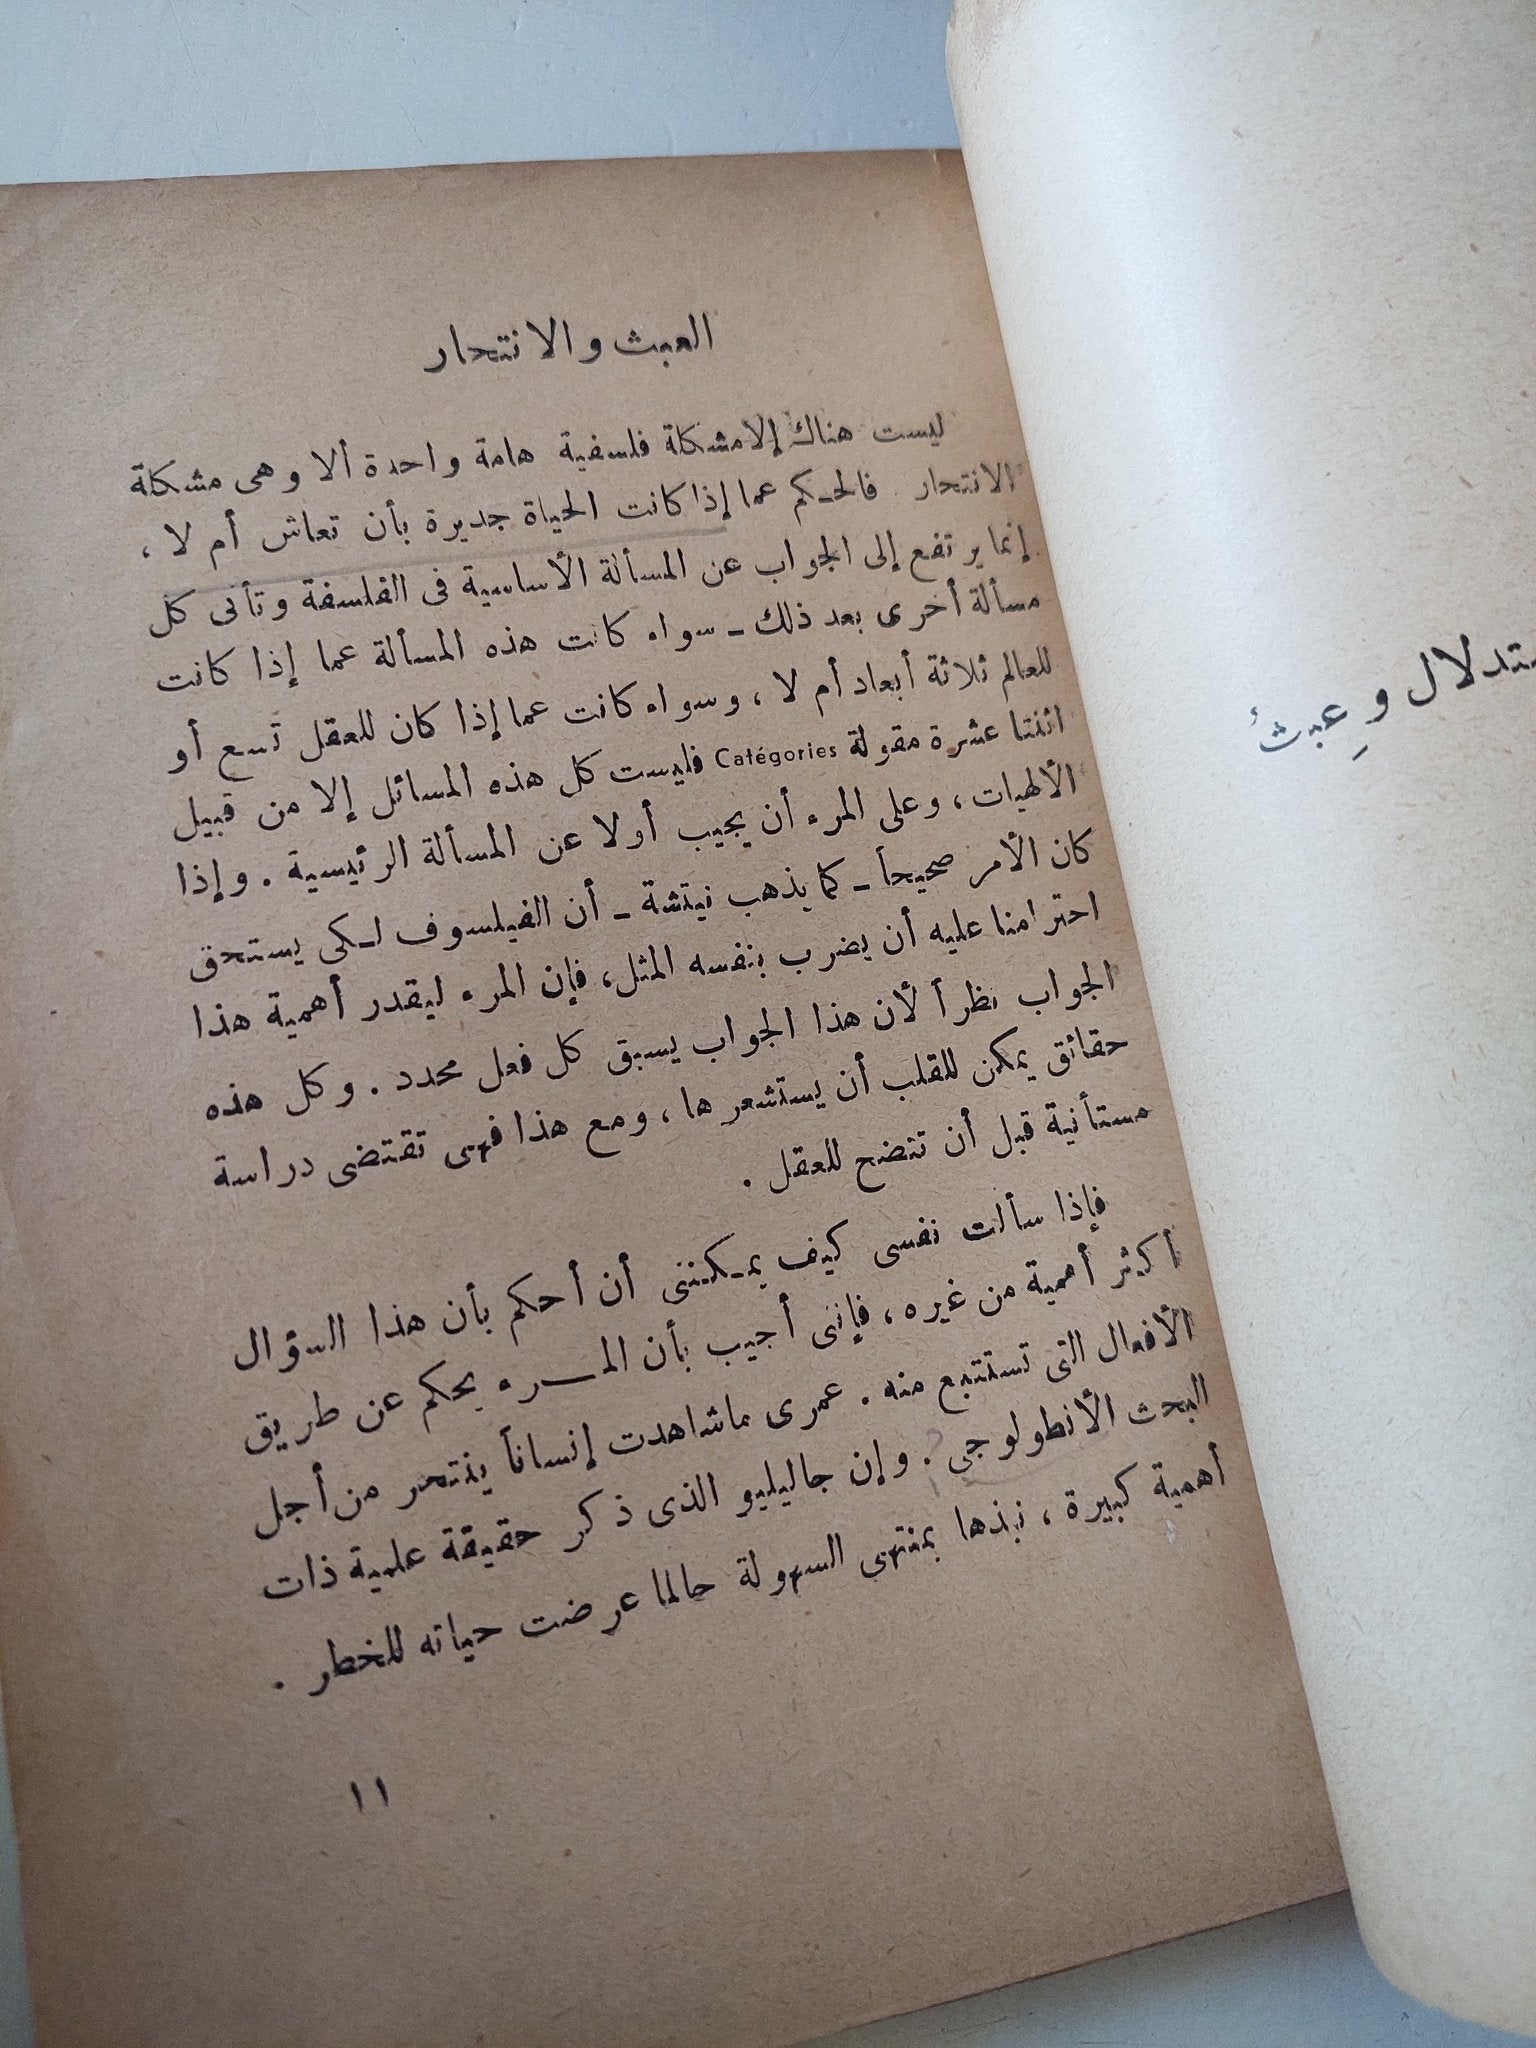 العبث والانتحار
ليست هناك إلا مشكلة فلسفية هامة واحدة ألا وهى مشكلة
الانتحار. فالحكم عما إذا كانت الحياة جديرة بأن تعاش أم لا،
إنما يرتفع إلى الجواب عن المسألة الأساسية فى الفلسفة وتأتى كل
مسألة أخرى بعد ذلك ـ سواء كانت هذه المسألة عما إذا كانت
للعالم ثلاثة أبعاد أم لا، وسواء كانت عما إذا كان للعقل تسع أو
اثنتا عشرة مقولة Catégories فليست كل هذه المسائل إلا من قبيل
الألهيات، وعلى المرء أن يجيب أولا عن المسألة الرئيسية. وإذا
كان الأمر صحيحاً ـ كما يذهب نيتشة ـ أن الفيلسوف لكى يستحق
احترامنا عليه أن يضرب بنفسه المثل، فإن المرء ليقدر أهمية هذا
الجواب نظراً لأن هذا الجواب يسبق كل فعل محدد. وكل هذه
حقائق يمكن للقلب أن يستشعرها، ومع هذا فهى تقتضى دراسة
مستأنية قبل أن تتضح للعقل.
فإذا سألت نفسى كيف يمكننى أن أحكم بأن هذا السؤال
أكثر أهمية من غيره، فإننى أجيب بأن المرء يحكم عن طريق
الأفعال التى تستتبع منه. عمرى ما شاهدت إنساناً ينتحر من أجل
البحث الأنطولوجى. وإن جاليليو الذى ذكر حقيقة علمية ذات
أهمية كبيرة، نبذها بمنتهى السهولة حالما عرضت حياته للخطر.
١١
ستدلال وعبث